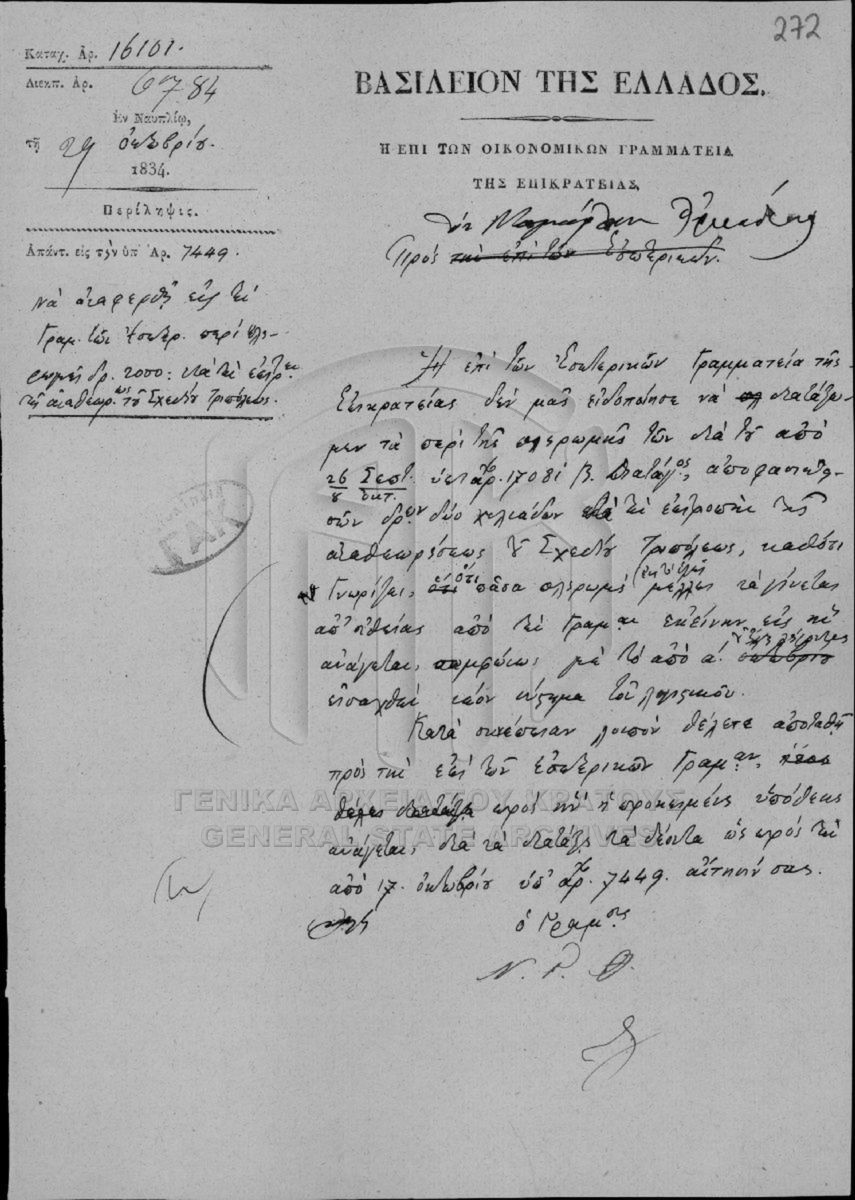 272
Καταχ. Αρ. 16101.
Διεκπ. Αρ. 6784
Εν Ναυπλίῳ,
τῇ 29 ὀκτωβρίου.
1834.
Περίληψις.
Απάντ. εἰς τὴν ὑπ' Αρ. 7449.
νὰ ἀναφερθῇ εἰς τὴν
Γραμ. τῶν Ἐσωτερ. περὶ πλη-
ρωμῆς δρ. 2000: διὰ τὴν ἐπιτρ.
τῆς ἀναθεωρ.εως τοῦ Σχεδίου Τριπόλεως.
ΒΑΣΙΛΕΙΟΝ ΤΗΣ ΕΛΛΑΔΟΣ.
Η ΕΠΙ ΤΩΝ ΟΙΚΟΝΟΜΙΚΩΝ ΓΡΑΜΜΑΤΕΙΑ
ΤΗΣ ΕΠΙΚΡΑΤΕΙΑΣ,
τὸν Νομάρχην Ἀρκαδίας
Πρὸς τὴν ἐπὶ τῶν Ἐσωτερικῶν.
Ἡ ἐπὶ τῶν Ἐσωτερικῶν Γραμματεία τῆς
Ἐπικρατείας δὲν μᾶς εἰδοποίησε νὰ διατάξω-
μεν τὰ περὶ τῆς πληρωμῆς τῶν διὰ τοῦ ἀπὸ
26 Σεπτ. / 8 Ὀκτ. ὑπ' ἀρ. 17081 Β. Διατάγ.ος, ἀποφασισθει-
σῶν δρ.ῶν δύο χιλιάδων διὰ τὴν ἐπιτροπὴν τῆς
ἀναθεωρήσεως τοῦ Σχεδίου Τριπόλεως, καθότι
γνωρίζει, ὅτι πᾶσα πληρωμὴ μέλλει νὰ γίνεται
ἀπ' εὐθείας ἀπὸ τὴν Γραμ. ἐκείνην εἰς ἣν
ἀνάγεται, συμφώνως μὲ τὸ ἀπὸ α. ὀκτωβρίου
εἰσαχθὲν νέον σύστημα τοῦ λογιστικοῦ.
Κατὰ συνέπειαν λοιπὸν θέλετε ἀποταθῆ
πρὸς τὴν ἐπὶ τῶν Ἐσωτερικῶν Γραμ.αν,
πρὸς ἣν ἡ προκειμένη ὑπόθεσις
ἀνάγεται, διὰ νὰ διατάξῃ τὰ δέοντα ὡς πρὸς τὴν
ἀπὸ 17. ὀκτωβρίου ὑπ' ἀρ. 7449. αἴτησίν σας.
ὁ Γραμ.
Ν. Γ. Θ.
ΓΕΝΙΚΑ ΑΡΧΕΙΑ ΤΟΥ ΚΡΑΤΟΥΣ
GENERAL STATE ARCHIVES